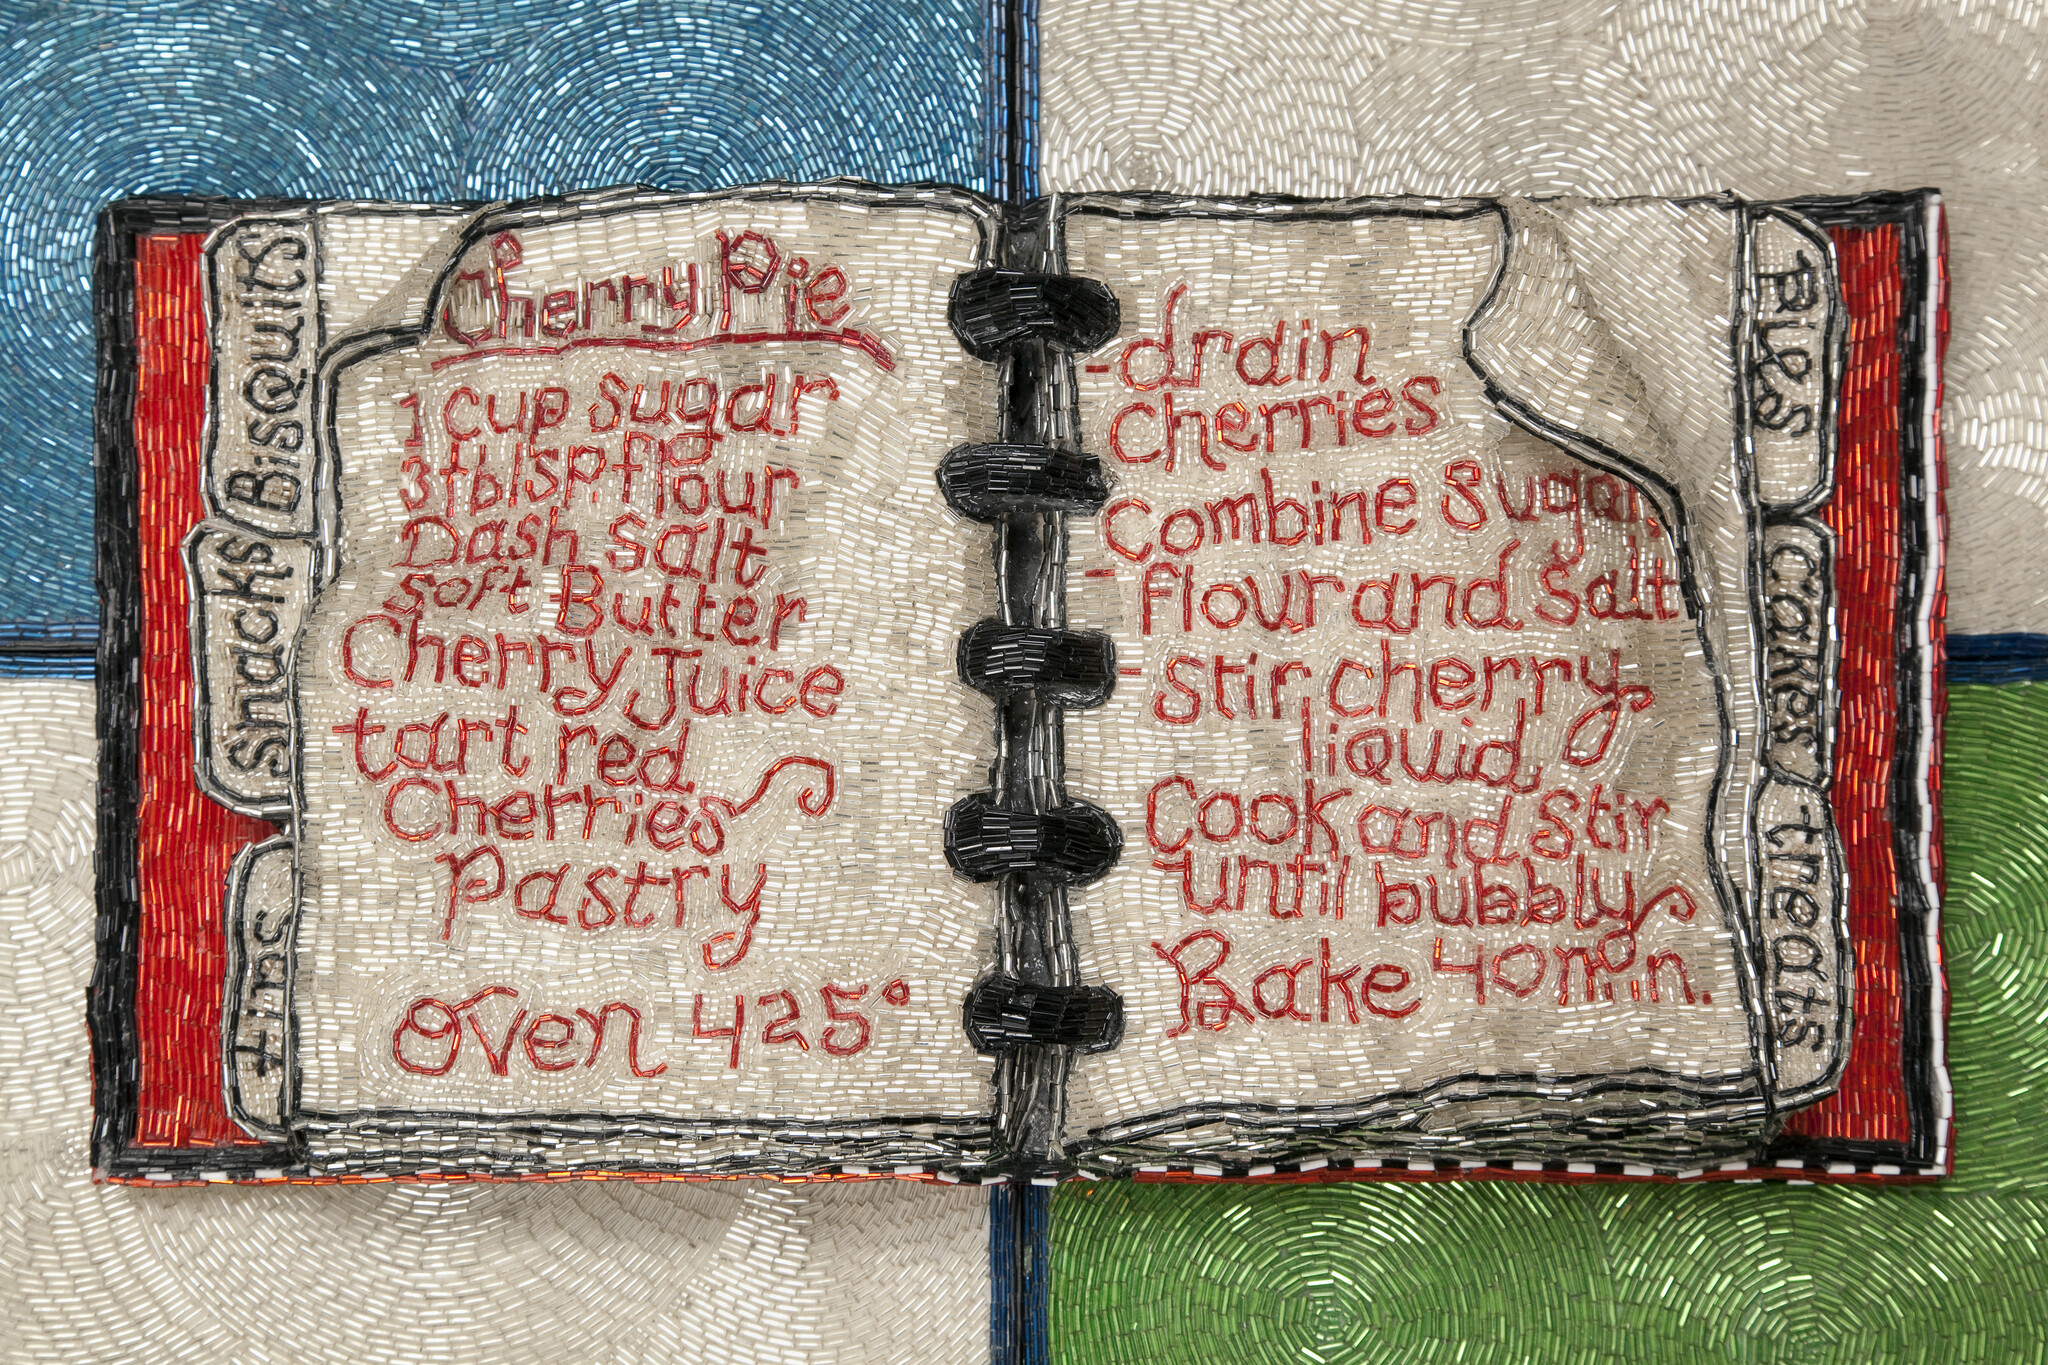 Bisquits
Snacks
Cherry Pie
1 cup sugar
3 tblsp flour
Dash salt
soft Butter
Cherry Juice
tart red
Cherries
Pastry
oven 425°
-drain
Cherries
Combine Sugar
-flour and Salt
-Stir cherry
liquid
Cook and Stir
until bubbly
Bake 40 min.
PIES
cakes
treats